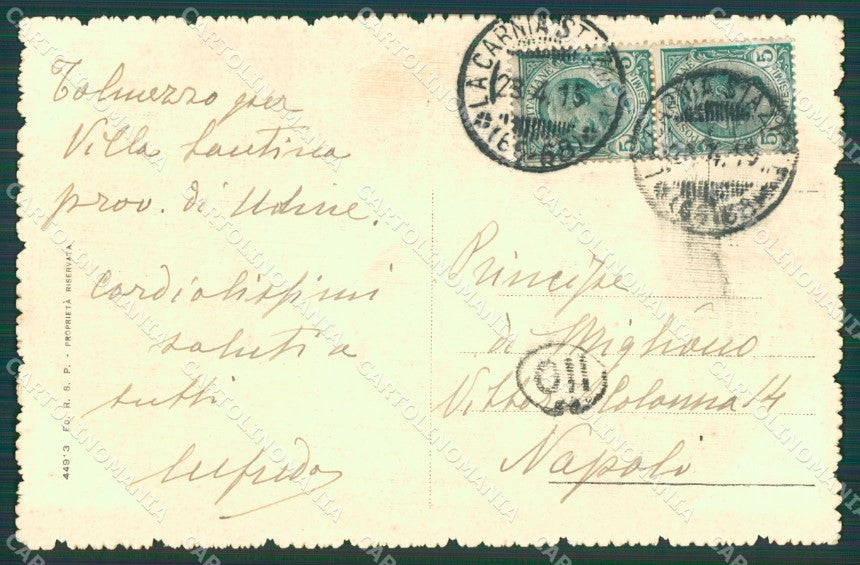 Tolmezzo per
Villa Santina
prov. di Udine.
Cordialissimi
saluti a
tutti
Alfredo
449*3 ED. R. S. P. - PROPRIETÀ RISERVATA
LA CARNIA
(65-68)
LA CARNIA STAZ
(65-68)
5
5
5
Principe
di Migliano
Vitto Colonna 14
Napoli
CARTOLINOMANIA